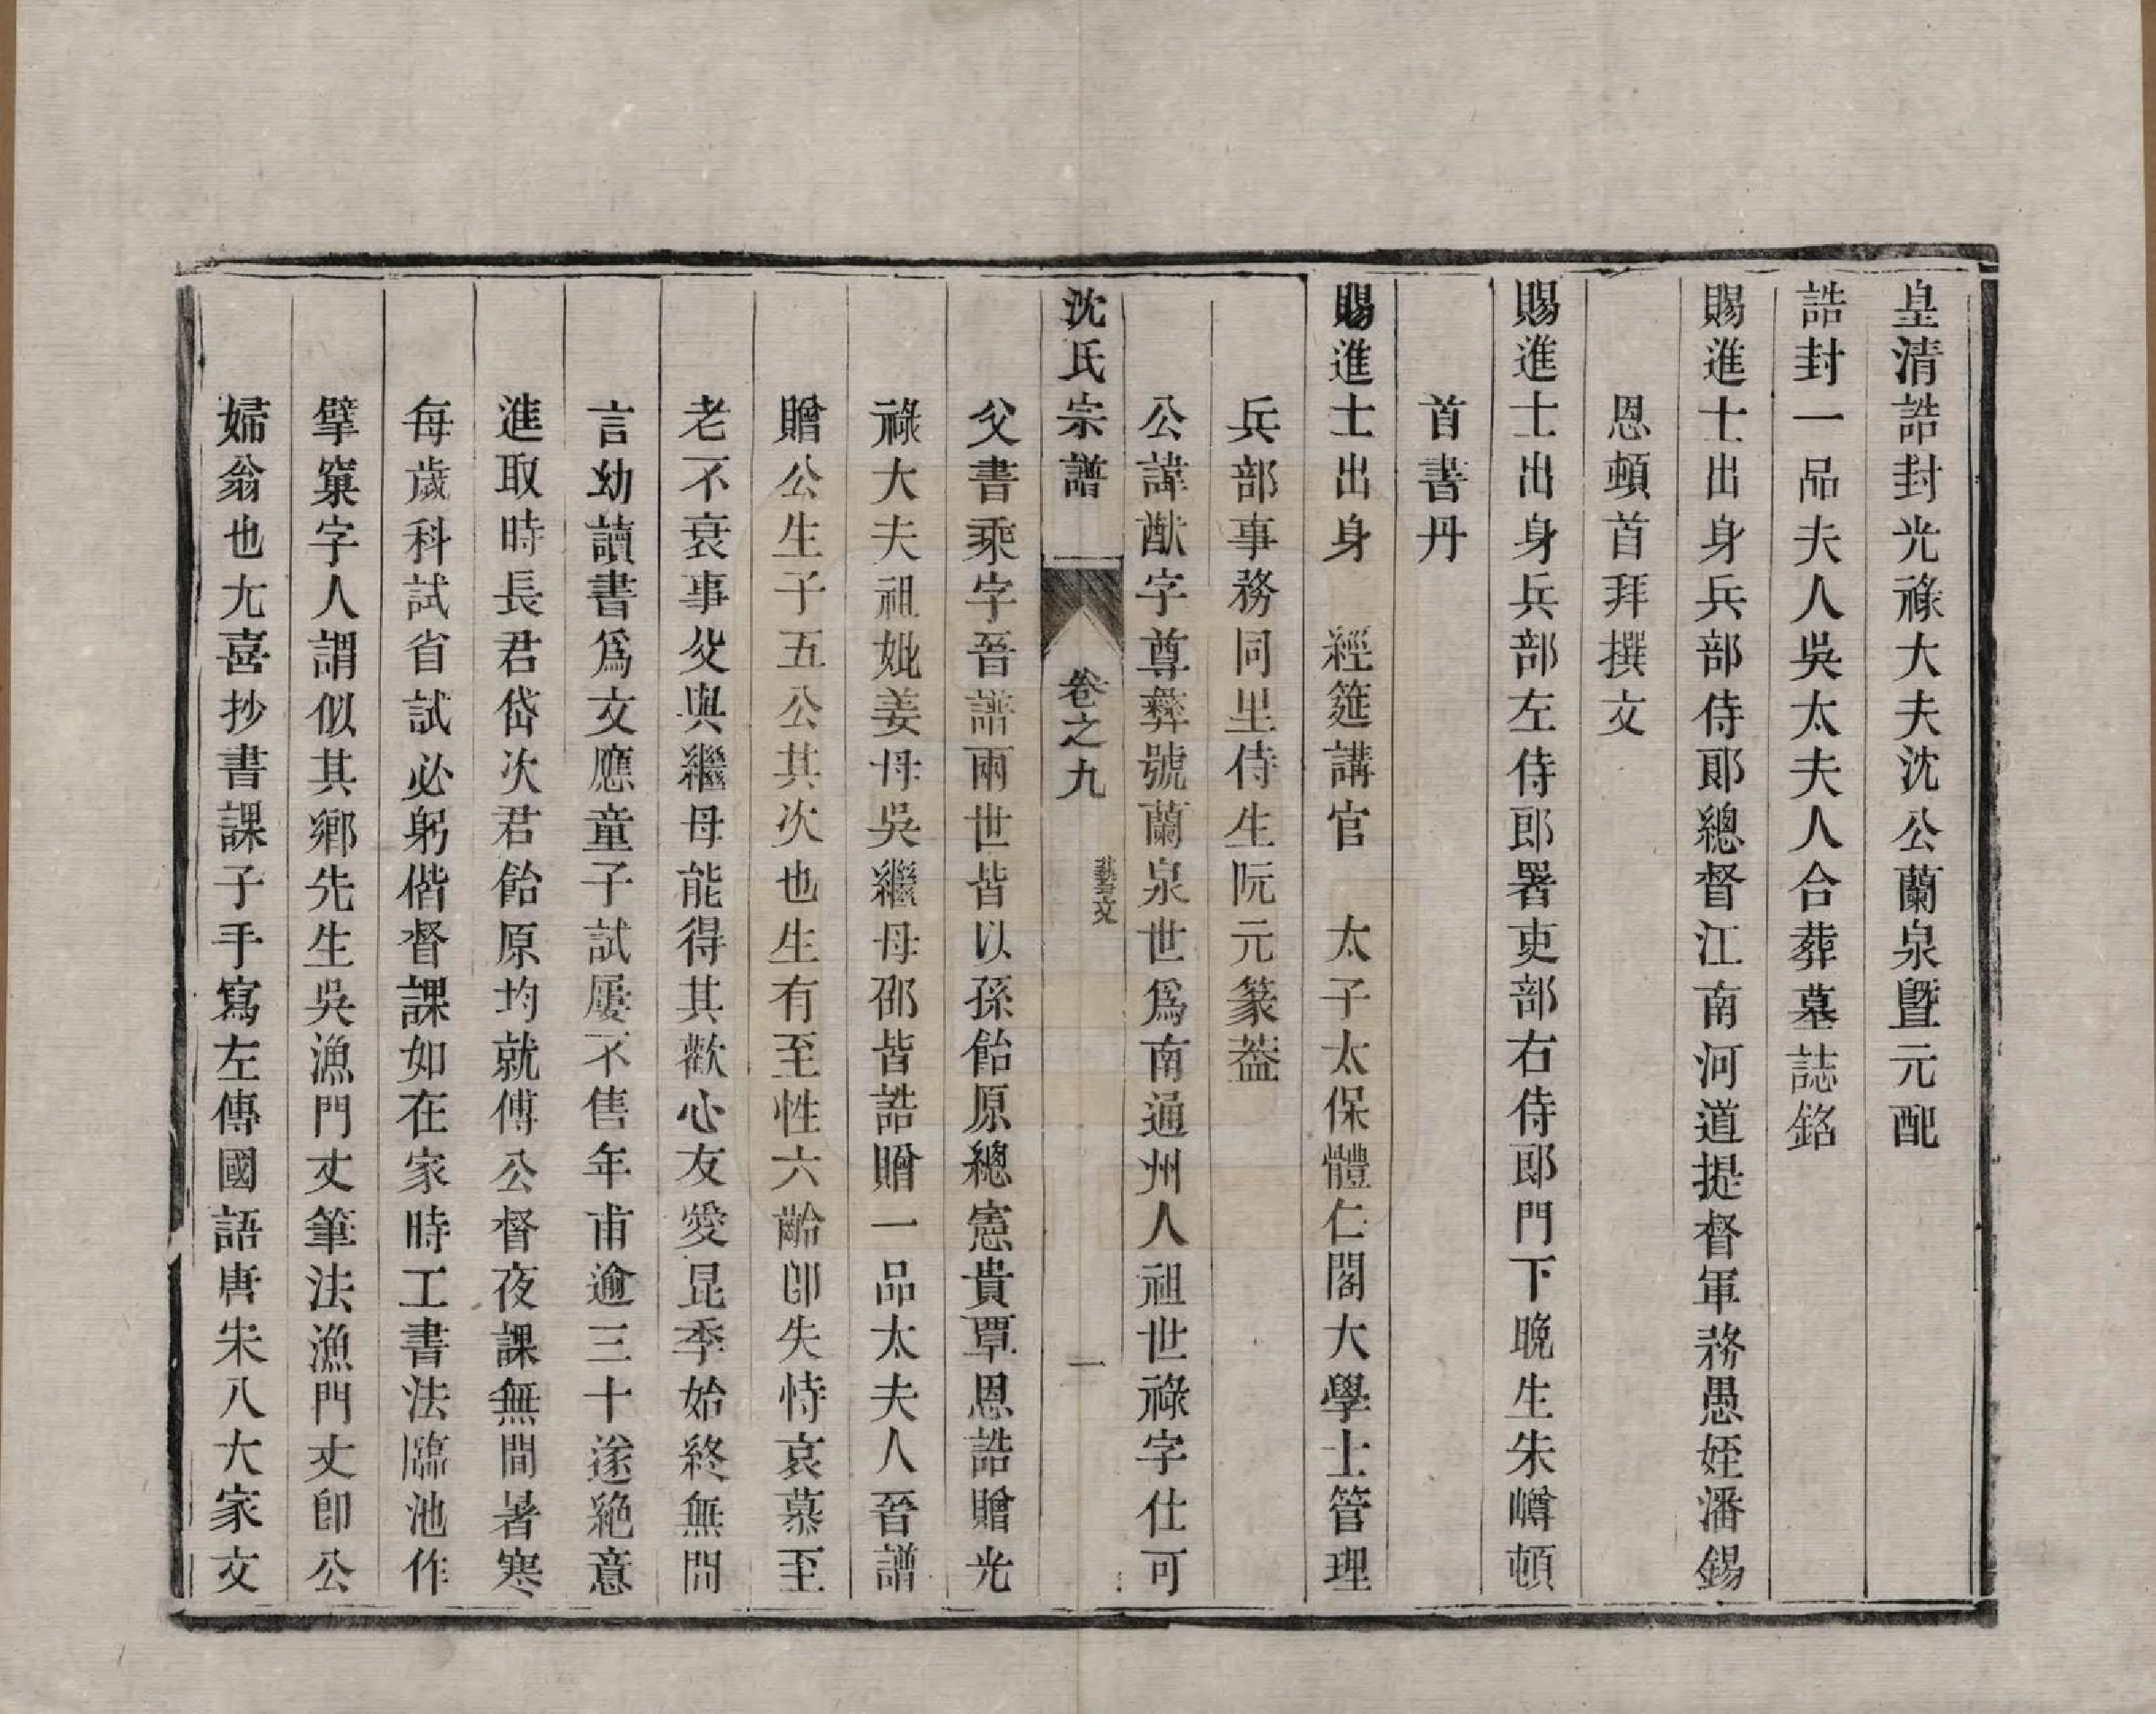 皇清誥封光祿大夫沈公蘭泉曁元配
誥封一品夫人吳太夫人合葬墓誌銘
賜進士出身兵部侍郎總督江南河道提督軍務愚姪潘錫
恩頓首拜撰文
賜進士出身兵部左侍郎署吏部右侍郎門下晚生朱嶟頓
首書丹
賜進士出身　經筵講官　太子太保體仁閣大學士管理
兵部事務同里侍生阮元篆葢
公諱猷字尊彝號蘭泉世爲南通州人祖世祿字仕可
沈氏宗譜　卷之九　藝文　一
父書乘字晉譜兩世皆以孫飴原總憲貴覃恩誥贈光
祿大夫祖妣姜母吳繼母邵皆誥贈一品太夫人晉譜
贈公生子五公其次也生有至性六齡卽失恃哀慕至
老不衰事父與繼母能得其歡心友愛昆季始終無間
言幼讀書爲文應童子試屢不售年甫逾三十遂絕意
進取時長君岱次君飴原均就傅公督夜課無間暑寒
每歲科試省試必躬偕督課如在家時工書法臨池作
擘窠字人謂似其鄉先生吳漁門丈筆法漁門丈卽公
婦翁也尢喜抄書課子手寫左傳國語唐宋八大家文